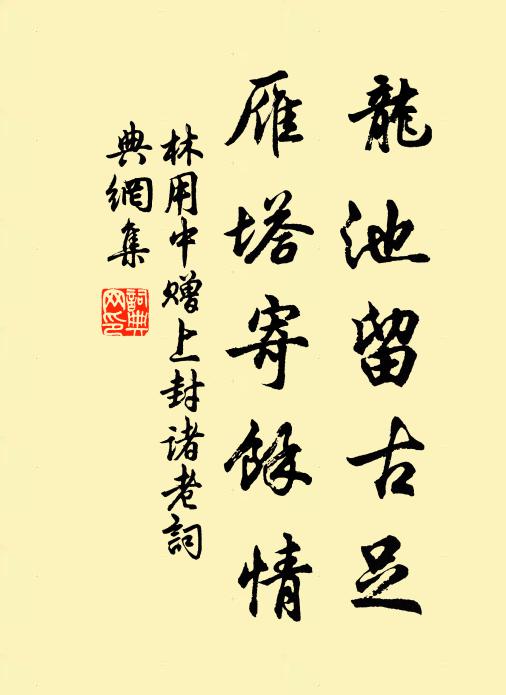 龍池留古足
雁塔寄餘情
林用中贈上封诸老詞
典網集
詞典
网印